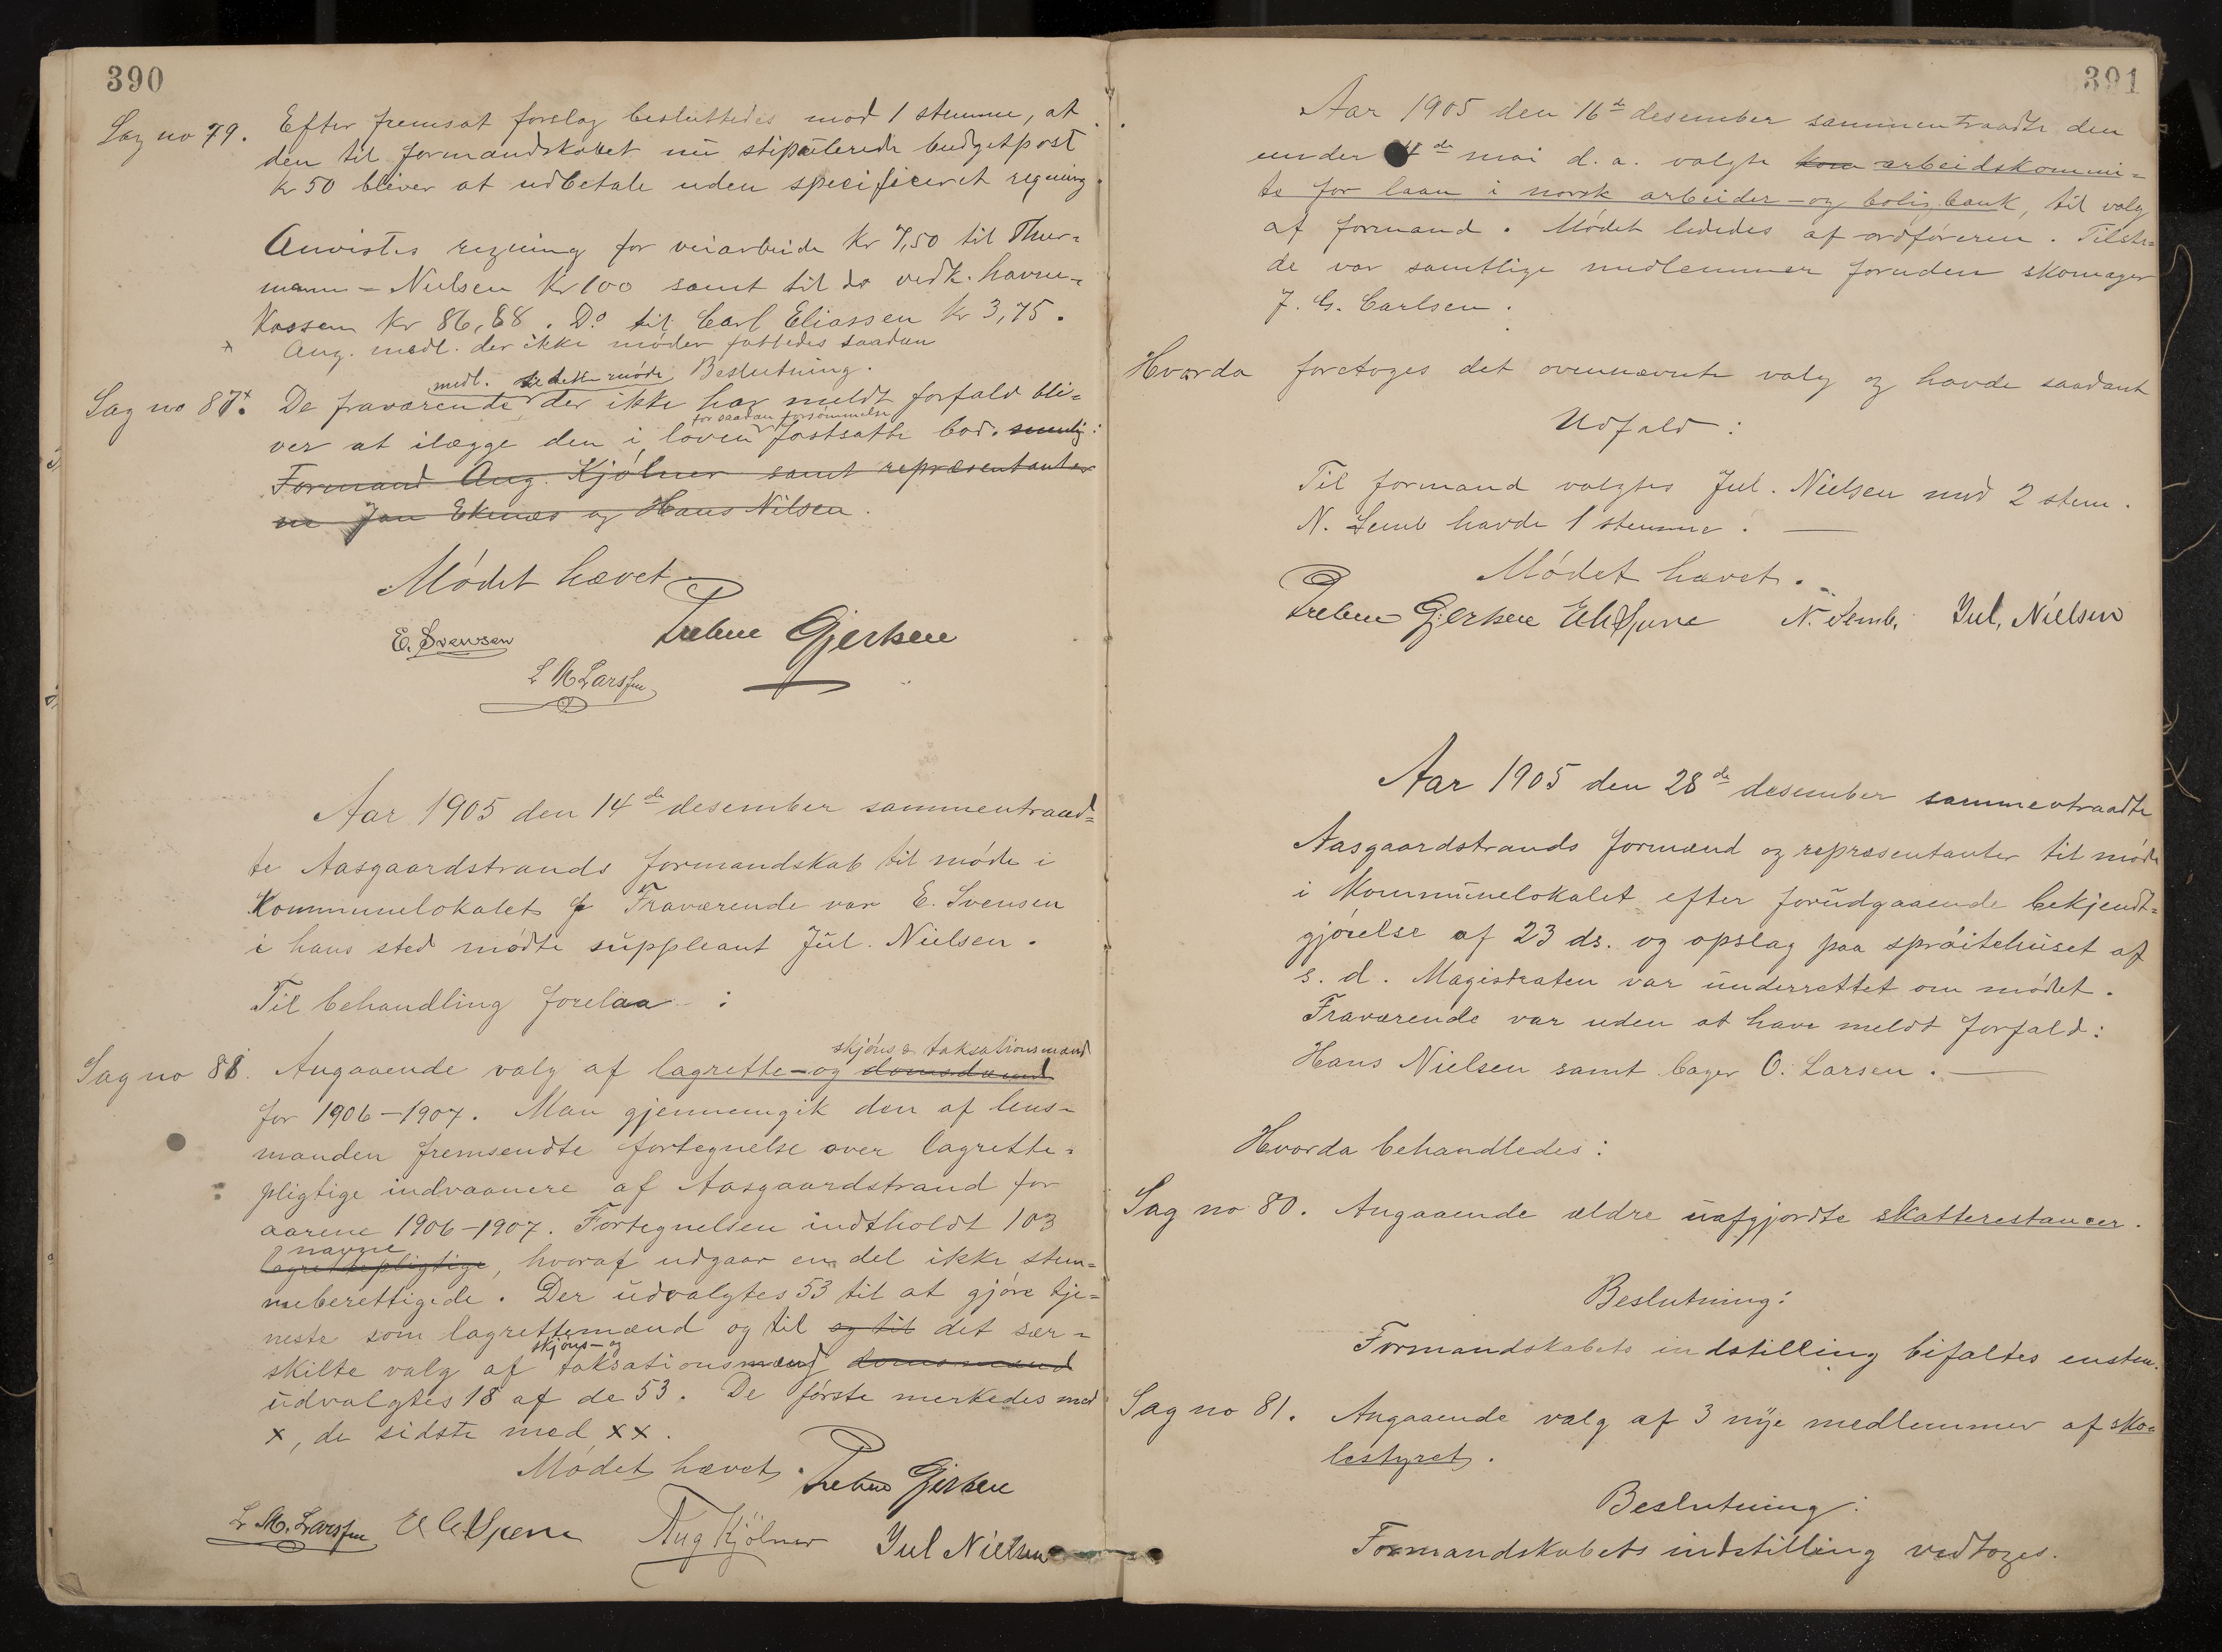 390
Sag no 79. Efter fremsat forslag besluttedes mod 1 stemme, at
den til formandskabet nu stipulerede budgetpost
kr 50 bliver at udbetale uden specificeret regning.
Anvistes regning for veiarbeide kr 7,50 til Thur=
mann-Nielsen kr 100 samt til do vedk. havne-
kassen kr 86,88. Do til Carl Eliassen kr 3,75.
x Ang. medl. der ikke møder fattedes saadan
Beslutning.
medl. til dette møde
Sag no 87x. De fraværende der ikke har meldt forfald bli=
for saadan forsømmelse
ver at ilægge den i loven fastsatte bod. nemlig:
Formand Aug. Kjølner samt repræsentanter
ne Jan Ekenæs og Hans Nilsen.
Mødet hævet
E. Svensen Preben Gjersøe
L M Larssen
Aar 1905 den 14de desember sammentraad=
te Aasgaardstrands formandskab til møde i
Kommunelokalet. Fraværende var E. Svensen
i hans sted mødte suppleant Jul. Nielsen.
Til behandling forelaa :
skjøns & taksationsmænd
Sag no 88. Angaaende valg af lagrette- og domsmænd
for 1906-1907. Man gjennemgik den af lens-
manden fremsendte fortegnelse over lagrette=
pligtige indvaanere af Aasgaardstrand for
aarene 1906-1907. Fortegnelsen indtholdt 103
navne
lagrettepligtige, hvoraf udgaar en del ikke stem=
meberettigede. Der udvalgtes 53 til at gjøre tje=
neste som lagrettemænd og til og til det sær=
skjøns- og
skilte valg af taksationsmænd domsmænd
udvalgtes 18 af de 53. De første merkedes med
x, de sidste med xx.
Mødet hævet. Preben Gjersøe
L. M. Larssen Aug Kjølner Jul Nielsen
391
Aar 1905 den 16de desember sammentraadte den
under 4de mai d. a. valgte kom arbeidskommi=
te for laan i norsk arbeider- og boligbank, til valg
af formand. Mødet lededes af ordføreren. Tilste=
de var samtlige medlemmer foruden skomager
J. G. Carlsen.
Hvorda foretoges det ovennævnte valg og havde saadant
Udfald:
Til formand valgtes Jul. Nielsen med 2 stem.
N. Semb havde 1 stemme.
Mødet hævet.
Preben Gjersøe N. Semb. Jul, Nielsen
Aar 1905 den 28de desember sammentraadte
Aasgaardstrands formænd og repræsentanter til møde
i Kommunelokalet efter forudgaaende bekjendt=
gjørelse af 23 ds. og opslag paa sprøitehuset af
s. d. Magistraten var underrettet om mødet.
Fraværende var uden at have meldt forfald:
Hans Nielsen samt bager O. Larsen.
Hvorda behandledes:
Sag no 80. Angaaende ældre uafgjordte skatterestancer.
Beslutning:
Formandskabets indstilling bifaltes enstem.
Sag no 81. Angaaende valg af 3 nye medlemmer af sko=
lestyret.
Beslutning:
Formandskabets indstilling vedtoges.